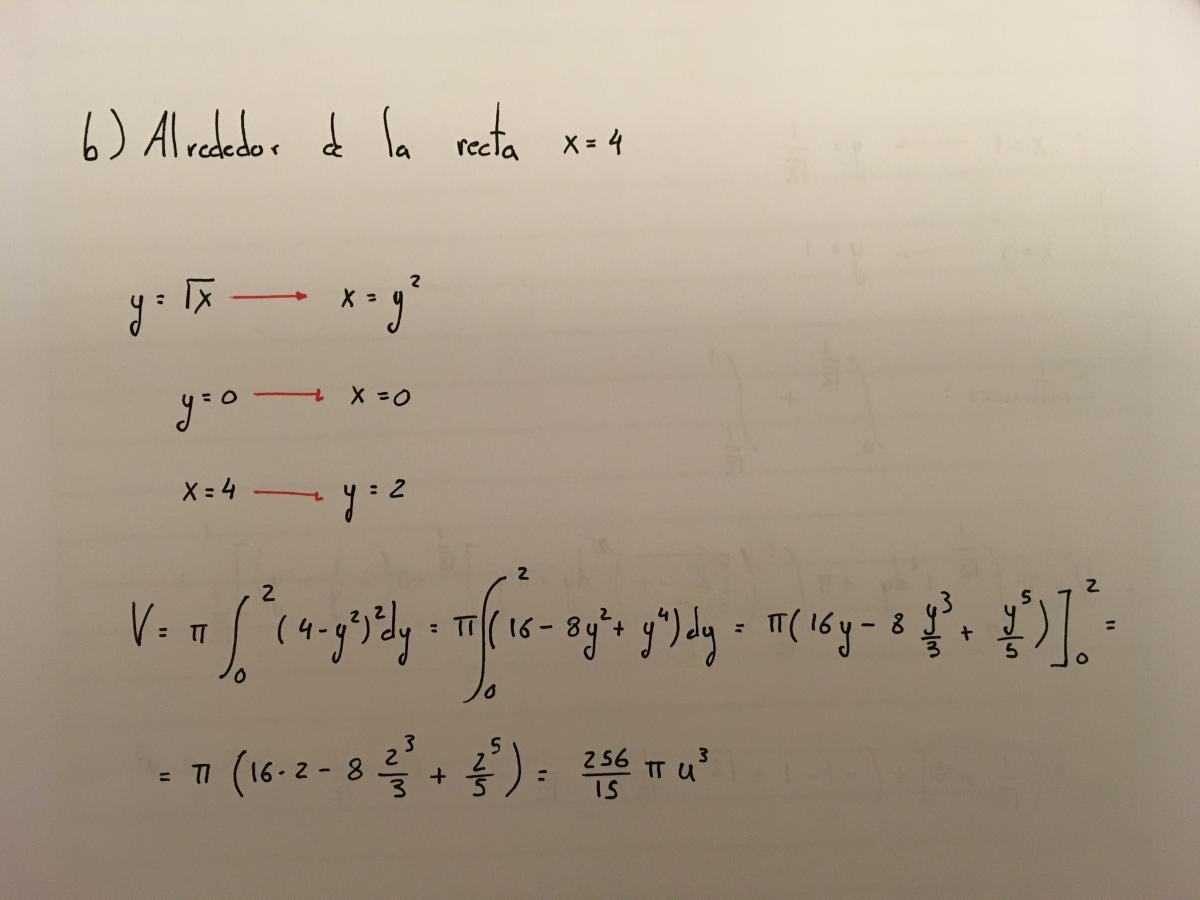 b) Alrededor de la recta x = 4
y = √x → x = y²
y = 0 → x = 0
x = 4 → y = 2
V = π ∫₀² (4 - y²)² dy = π ∫₀² (16 - 8y² + y⁴) dy = π (16y - 8 y³/3 + y⁵/5) ]₀² =
= π (16·2 - 8 2³/3 + 2⁵/5) = 256/15 π u³